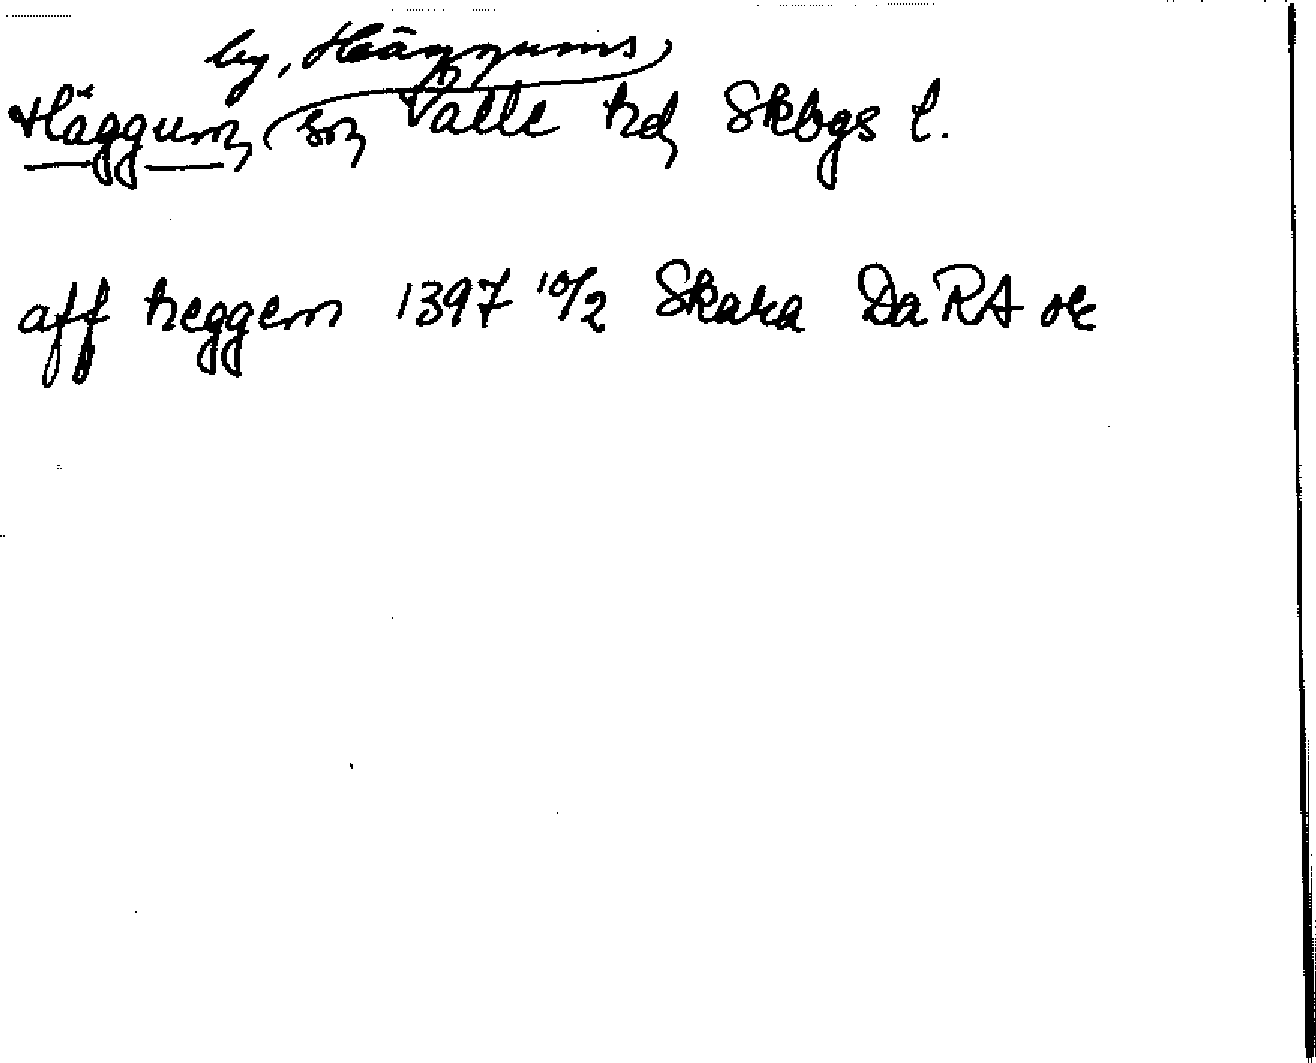 by, Häggums
Häggum, sn, Valle hd, Skbgs l.
aff heggem 1397 10/2 Skara DaRA or